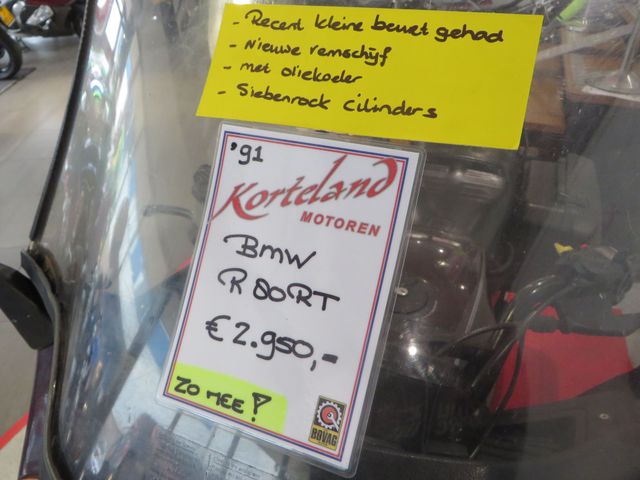 - Recent kleine beurt gehad
- Nieuwe remschijf
- met oliekoeler
- Siebenrock Cilinders
'91
Korteland
MOTOREN
BMW
R80RT
€ 2.950,-
ZO MEE!
BOVAG